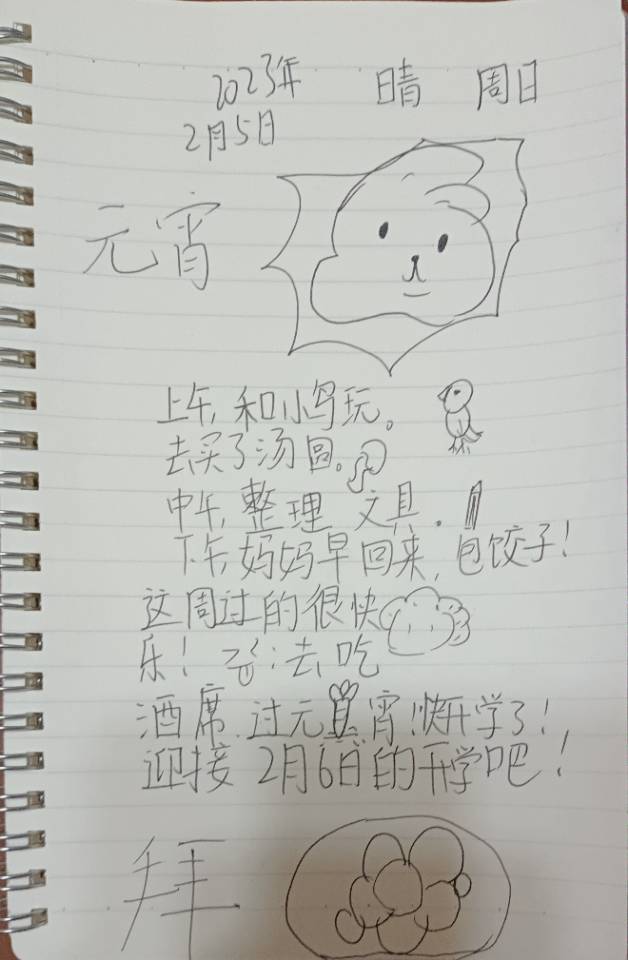 2023年 晴 周日
2月5日
元宵
上午,和小鸟玩。
去买了汤圆。
中午,整理文具.
下午,妈妈早回来,包饺子!
这周过的很快
乐! :去吃
酒席.过元宵!快开学了!
迎接2月6日的开学吧!
拜